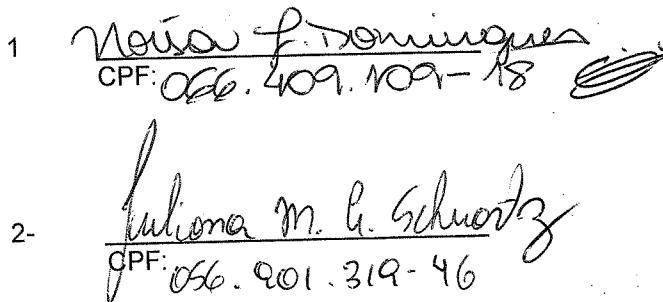 1 Moisa F. Domingues
CPF: 066.409.109-18
2- Juliana M. G. Schwartz
CPF: 056.901.319-46